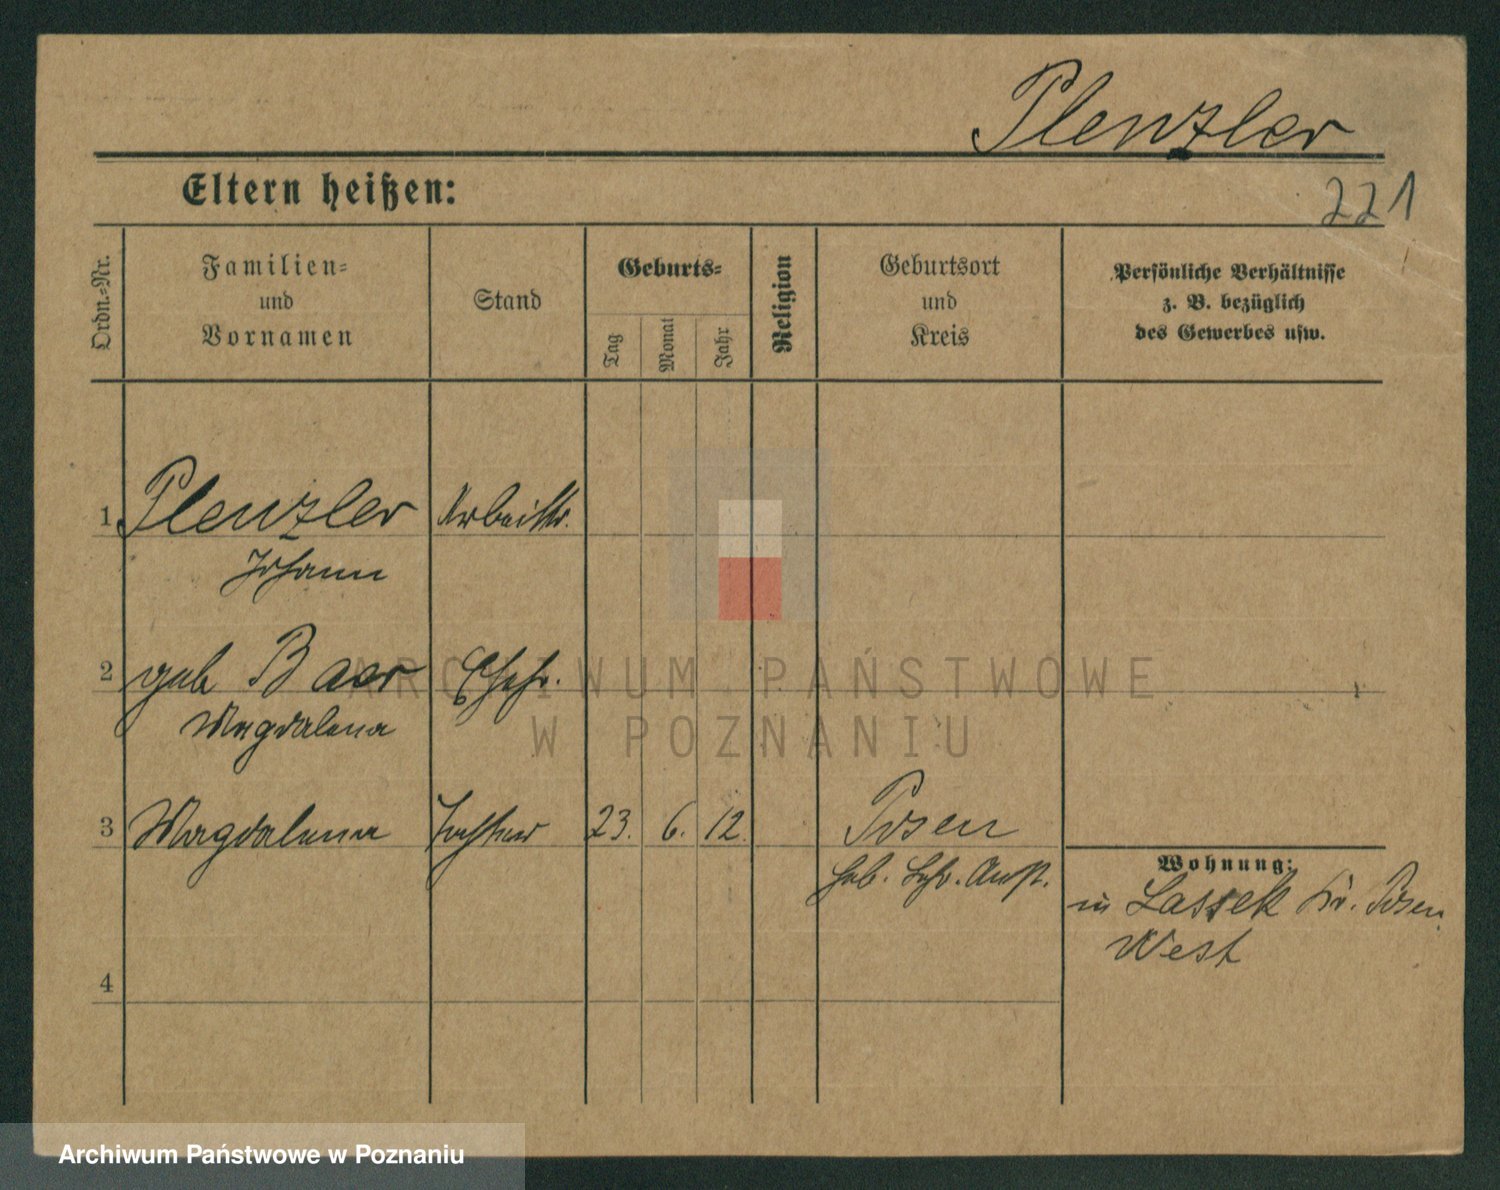 Plenzler
Eltern heißen:
221
Ordn.-Nr.
Familien-
und
Vornamen
Stand
Geburts-
Tag
Monat
Jahr
Religion
Geburtsort
und
Kreis
Persönliche Verhältnisse
z. B. bezüglich
des Gewerbes usw.
1 Plenzler Arbeitr.
Johann
2 geb Baer Ehefr.
Magdalena
3 Magdalena Tochter 23. 6. 12. Posen
Heb. Lehr. Anst.
Wohnung:
in Lassek Kr. Posen
West
4
ARCHIWUM PAŃSTWOWE
W POZNANIU
Archiwum Państwowe w Poznaniu